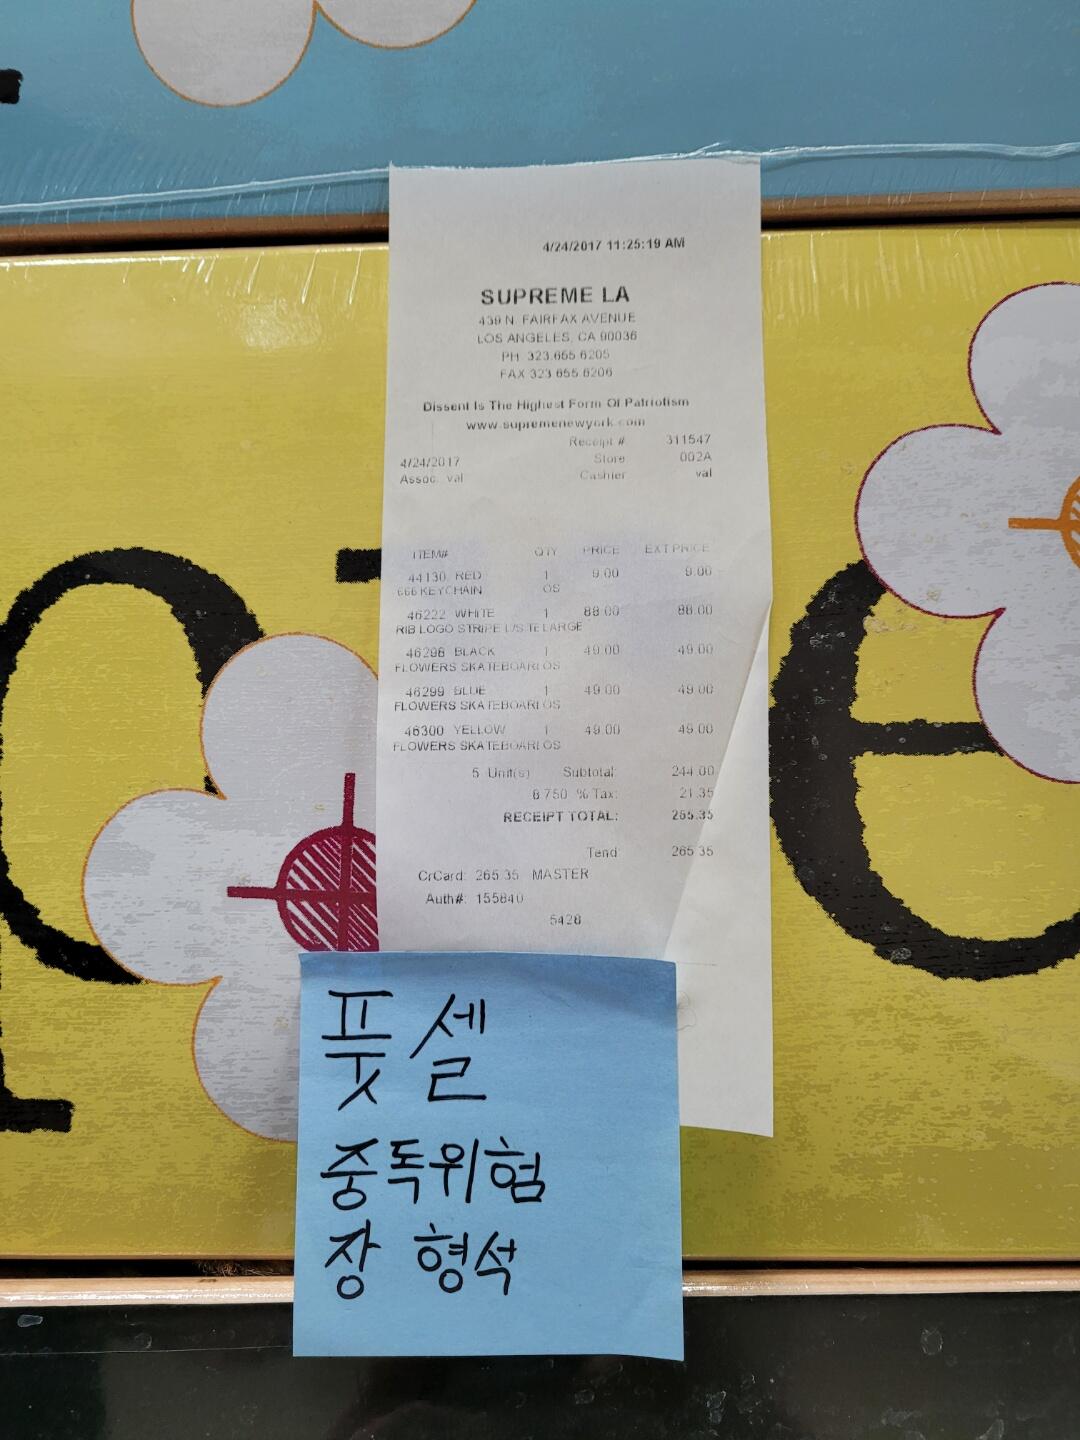 4/24/2017 11:25:19 AM
SUPREME LA
439 N. FAIRFAX AVENUE
LOS ANGELES, CA 90036
PH 323.655.6205
FAX 323.655.6206
Dissent Is The Highest Form Of Patriotism
www.supremenewyork.com
Receipt # 311547
4/24/2017 Store 002A
Assoc. val Cashier val
ITEM# QTY PRICE EXT PRICE
44130 RED 1 9.00 9.00
666 KEYCHAIN OS
46222 WHITE 1 88.00 88.00
RIB LOGO STRIPE L/S TE LARGE
46298 BLACK 1 49.00 49.00
FLOWERS SKATEBOARD OS
46299 BLUE 1 49.00 49.00
FLOWERS SKATEBOARD OS
46300 YELLOW 1 49.00 49.00
FLOWERS SKATEBOARD OS
5 Unit(s) Subtotal: 244.00
8.750 % Tax: 21.35
RECEIPT TOTAL: 265.35
Tend 265.35
CrCard: 265.35 MASTER
Auth#: 155840
5428
풋셀
중독위험
장형석